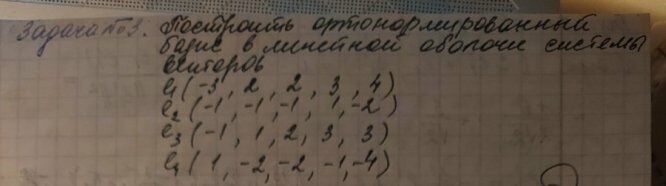 Задача №3. Построить ортонормированный
базис в линейной оболочке системы
векторов
e1 (-3, 2, 2, 3, 4)
e2 (-1, -1, -1, 1, -2)
e3 (-1, 1, 2, 3, 3)
e4 (1, -2, -2, -1, -4)